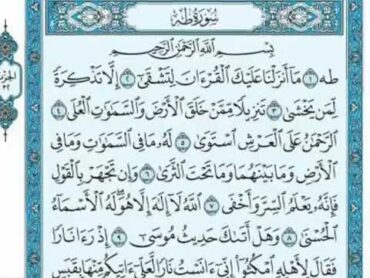 سُورَةُ طه
بِسْمِ اللَّهِ الرَّحْمَٰنِ الرَّحِيمِ
طه ۝١ مَا أَنزَلْنَا عَلَيْكَ الْقُرْءَانَ لِتَشْقَىٰ ۝٢ إِلَّا تَذْكِرَةً
لِّمَن يَخْشَىٰ ۝٣ تَنزِيلًا مِّمَّنْ خَلَقَ الْأَرْضَ وَالسَّمَٰوَٰتِ الْعُلَى ۝٤
الرَّحْمَٰنُ عَلَى الْعَرْشِ اسْتَوَىٰ ۝٥ لَهُ مَا فِي السَّمَٰوَٰتِ وَمَا فِي
الْأَرْضِ وَمَا بَيْنَهُمَا وَمَا تَحْتَ الثَّرَىٰ ۝٦ وَإِن تَجْهَرْ بِالْقَوْلِ
فَإِنَّهُ يَعْلَمُ السِّرَّ وَأَخْفَى ۝٧ اللَّهُ لَا إِلَٰهَ إِلَّا هُوَ لَهُ الْأَسْمَاءُ
الْحُسْنَىٰ ۝٨ وَهَلْ أَتَىٰكَ حَدِيثُ مُوسَىٰ ۝٩ إِذْ رَءَا نَارًا
فَقَالَ لِأَهْلِهِ امْكُثُوا إِنِّي ءَانَسْتُ نَارًا لَّعَلِّي ءَاتِيكُم مِّنْهَا بِقَبَسٍ